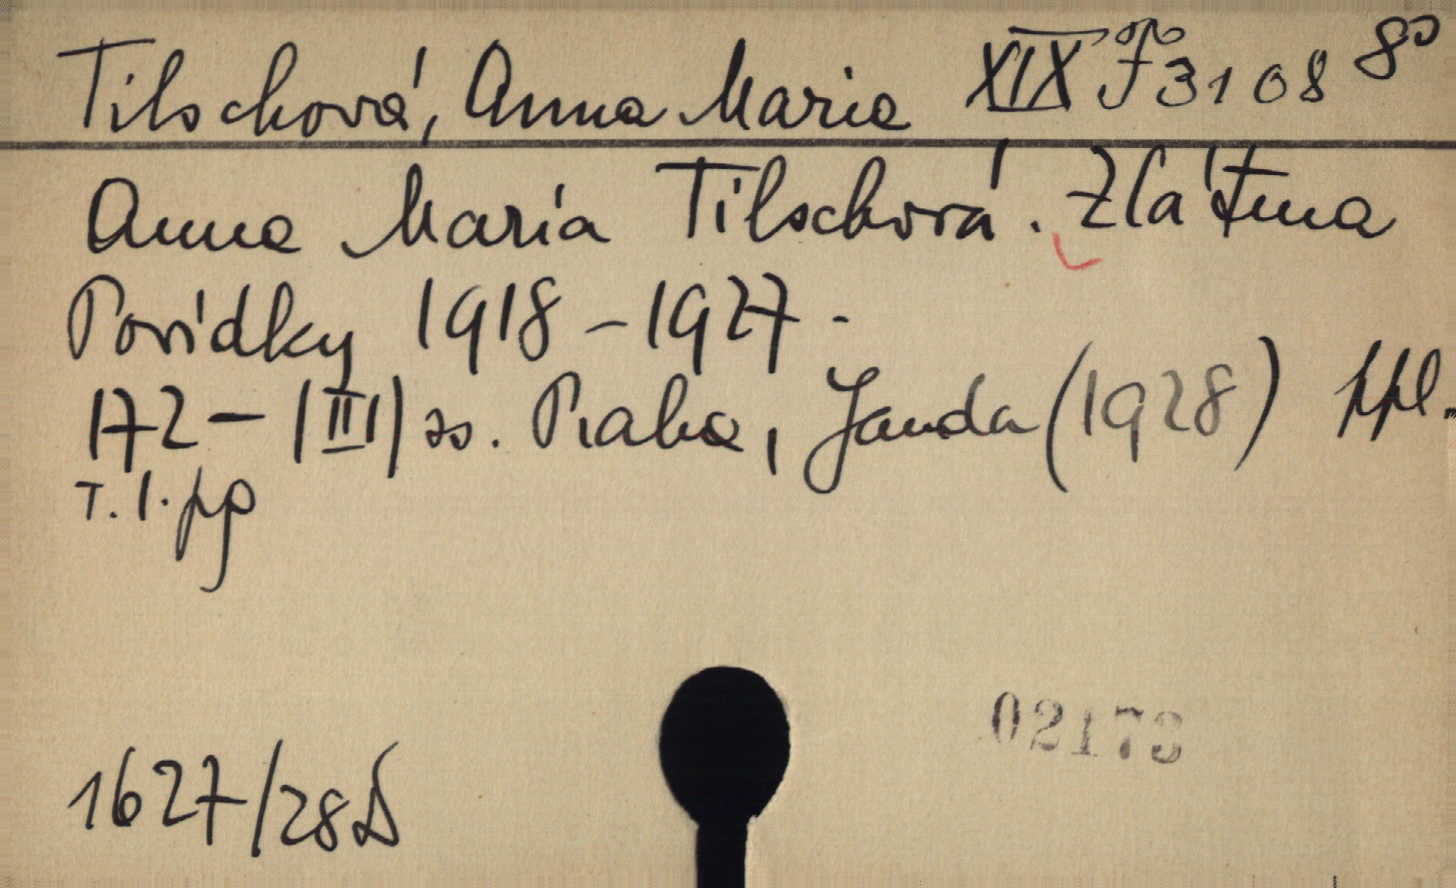 Tilschová, Anna Maria XIX F 3108 8°
Anna Maria Tilschová. Zlá tma
Povídky 1918-1927.
172-|III| ss. Praha, Janda (1928) ppl.
T. 1. pp
02173
1627/28D